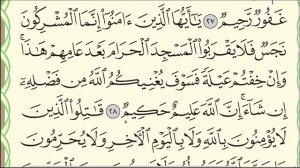 غَفُورٌ رَّحِيمٌ ٢٧ يَٰٓأَيُّهَا ٱلَّذِينَ ءَامَنُوٓا۟ إِنَّمَا ٱلْمُشْرِكُونَ
نَجَسٌ فَلَا يَقْرَبُوا۟ ٱلْمَسْجِدَ ٱلْحَرَامَ بَعْدَ عَامِهِمْ هَٰذَا ۚ
وَإِنْ خِفْتُمْ عَيْلَةً فَسَوْفَ يُغْنِيكُمُ ٱللَّهُ مِن فَضْلِهِۦٓ
إِن شَآءَ ۚ إِنَّ ٱللَّهَ عَلِيمٌ حَكِيمٌ ٢٨ قَٰتِلُوا۟ ٱلَّذِينَ
لَا يُؤْمِنُونَ بِٱللَّهِ وَلَا بِٱلْيَوْمِ ٱلْءَاخِرِ وَلَا يُحَرِّمُونَ